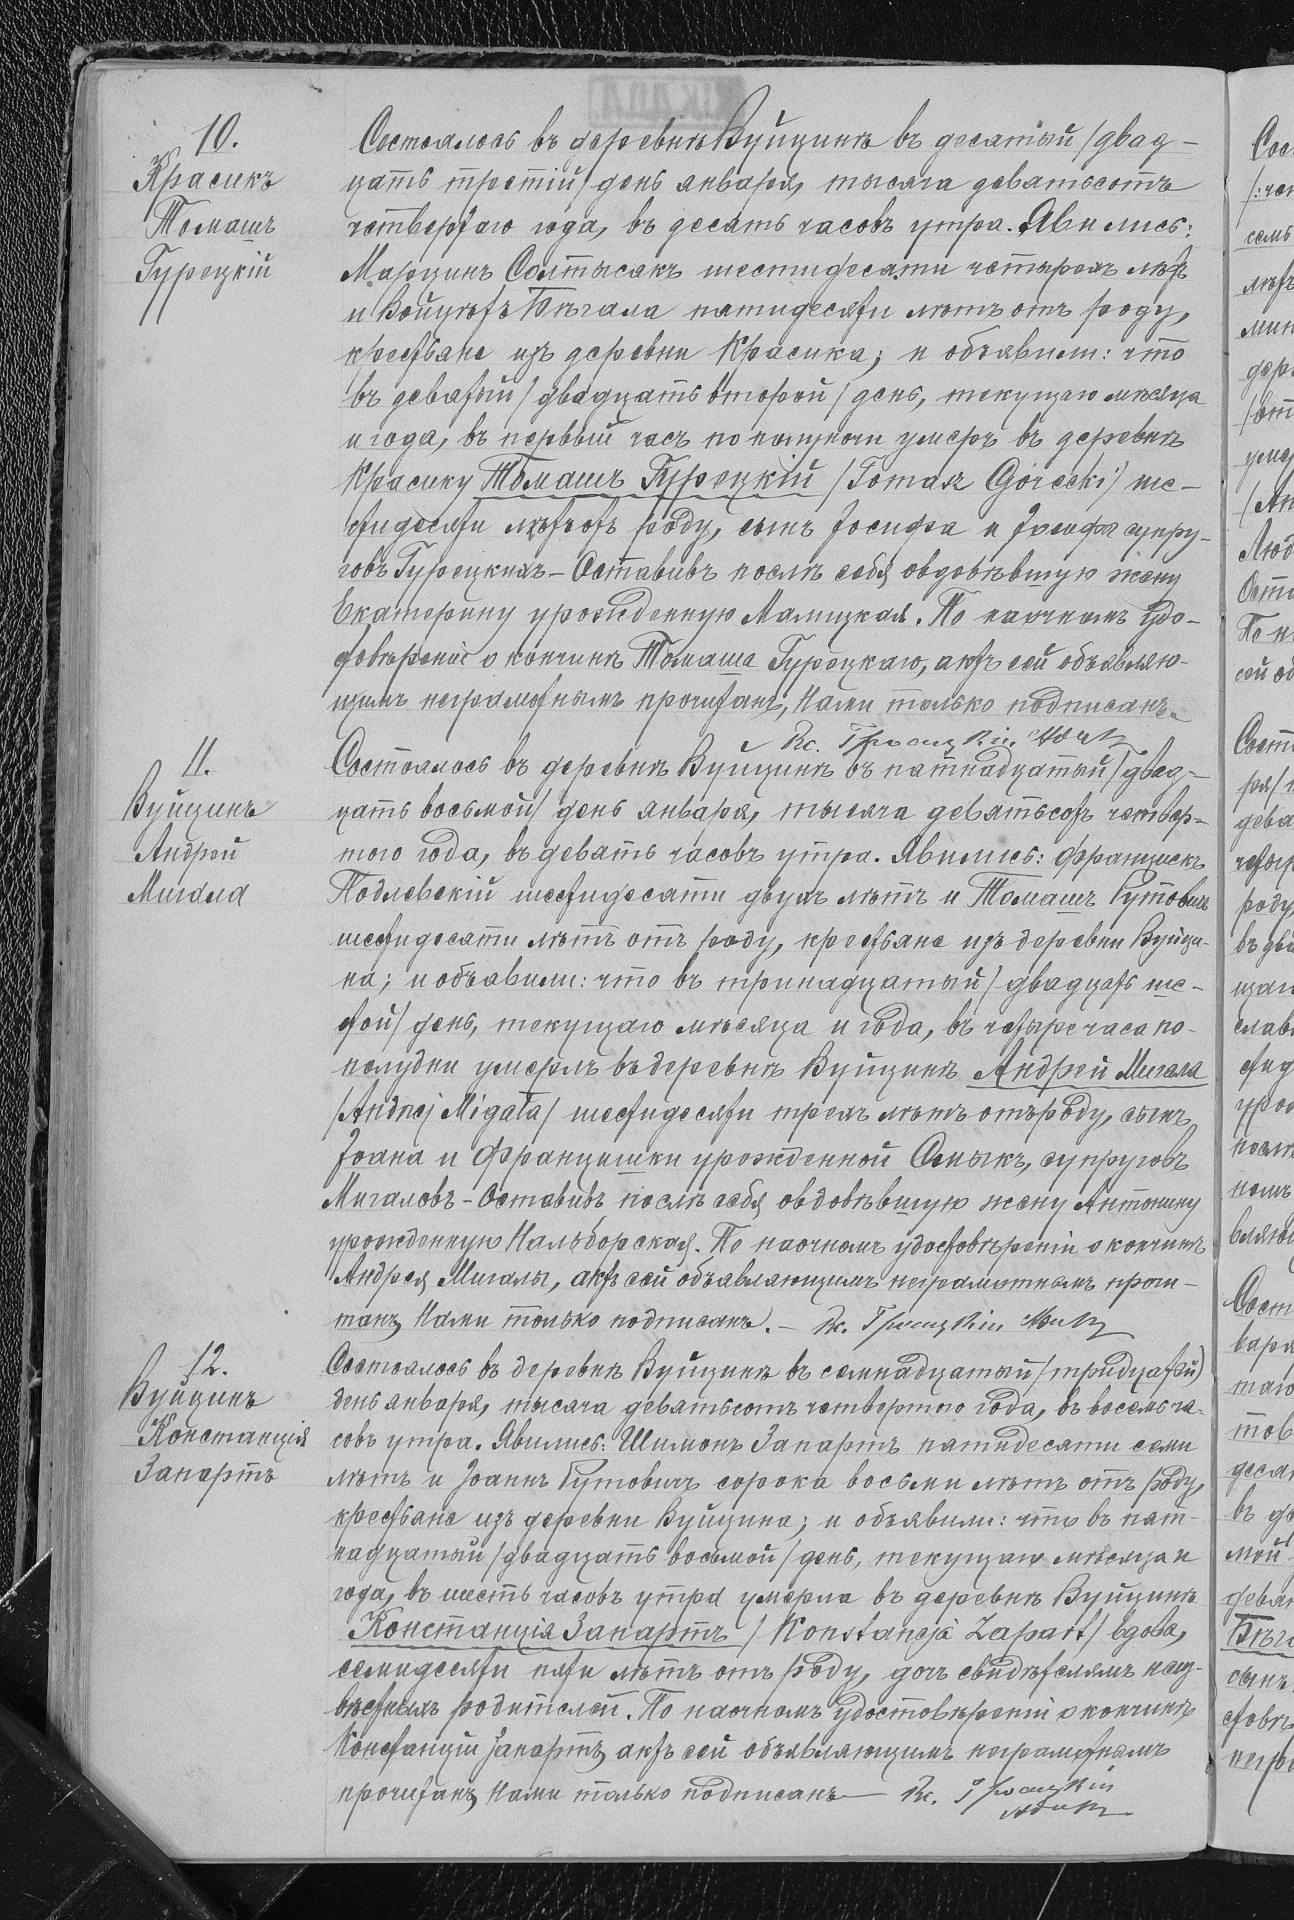 10.
Красикъ
Томашъ
Гурецкій
Состоялось въ деревнѣ Вуйцинѣ въ десятый /двад-
цать третій/ день января, тысяча девятьсотъ
четвертаго года, въ десять часовъ утра. Явились:
Марцинъ Солтысякъ шестидесяти четырехъ лѣтъ
и Войцѣхъ Бѣгала пятидесяти лѣтъ отъ роду,
крестьяне изъ деревни Красика; и объявили: что
въ девятый /двадцать второй/ день, текущаго мѣсяца
и года, въ первый часъ по полуночи умеръ въ деревнѣ
Красику Томашъ Гурецкій /Tomasz Górecki/ ше-
стидесяти лѣтъ отъ роду, сынъ Іосифа и Іосифы супру-
говъ Гурецкихъ – Оставивъ послѣ себя овдовѣвшую жену
Екатерину урожденную Малицкая. По наочномъ удо-
стовѣреніи о кончинѣ Томаша Гурецкаго, актъ сей объявляю-
щимъ неграмотнымъ прочитанъ, Нами только подписанъ.
Кс.
11.
Вуйцинъ
Андрей
Мигала
Состоялось въ деревнѣ Вуйцинѣ въ пятнадцатый /двад-
цать восьмой/ день января, тысяча девятьсотъ четвер-
того года, въ девять часовъ утра. Явились: Францискъ
Подлевскій шестидесяти двухъ лѣтъ и Томашъ Гутовихъ
шестидесяти лѣтъ отъ роду, крестьяне изъ деревни Вуйци-
на; и объявили: что въ тринадцатый /двадцать ше-
стой/ день, текущаго мѣсяца и года, въ четыре часа по-
полудни умеръ въ деревнѣ Вуйцинѣ Андрей Мигала
/Andrzej Migała/ шестидесяти трехъ лѣтъ отъ роду, сынъ
Іоана и Францишки урожденной Смыкъ, супруговъ
Мигаловъ – Оставивъ послѣ себя овдовѣвшую жену Антонину
урожденную Нальборская. По наочномъ удостовѣреніи о кончинѣ
Андрея Мигалы, актъ сей объявляющимъ неграмотнымъ прочи-
танъ, Нами только подписанъ. – Кс.
12.
Вуйцинъ
Констанція
Запартъ
Состоялось въ деревнѣ Вуйцинѣ въ семнадцатый /тридцатый/
день января, тысяча девятьсотъ четвертого года, въ восемь ча-
совъ утра. Явились: Шимонъ Запартъ пятидесяти семи
лѣтъ и Іоаннъ Гутовихъ сорока восьми лѣтъ отъ роду,
крестьяне изъ деревни Вуйцина; и объявили: что въ пят-
надцатый /двадцать восьмой/ день, текущаго мѣсяца и
года, въ шесть часовъ утра умерла въ деревнѣ Вуйцинѣ
Констанція Запартъ /Konstancja Zapart/ вдова,
семидесяти пяти лѣтъ отъ роду, дочь свидѣтелямъ неиз-
вѣстныхъ родителей. По наочномъ удостовѣреніи о кончинѣ
Констанціи Запартъ, актъ сей объявляющимъ неграмотнымъ
прочитанъ, Нами только подписанъ – Кс.